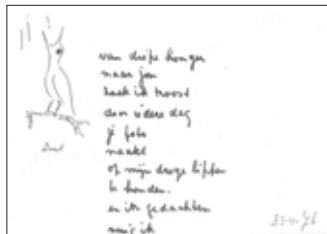 van diepe honger
naar jou
zoek ik troost
door iedere dag
je foto
naakt
op mijn droge lippen
te houden.
en in gedachten
ik